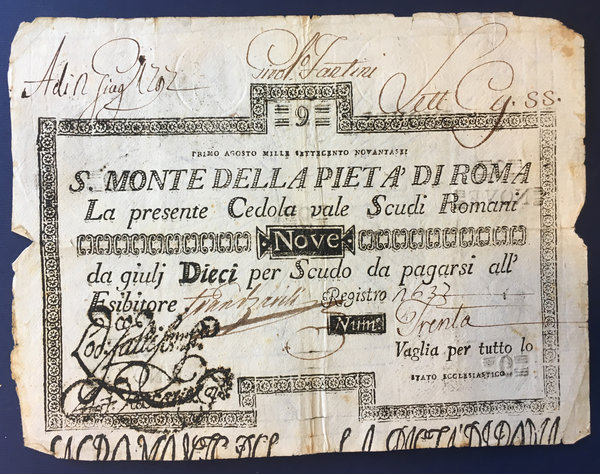 Adi 12 Giug 1797
Lett Cg. SS.
9
PRIMO AGOSTO MILLE SETTECENTO NOVANTASEI
S. MONTE DELLA PIETA' DI ROMA
La presente Cedola vale Scudi Romani
NOVE
da giulj Dieci per Scudo da pagarsi all'
Esibitore Registro 2633
Num: Trenta
Vaglia per tutto lo
STATO ECCLESIASTICO